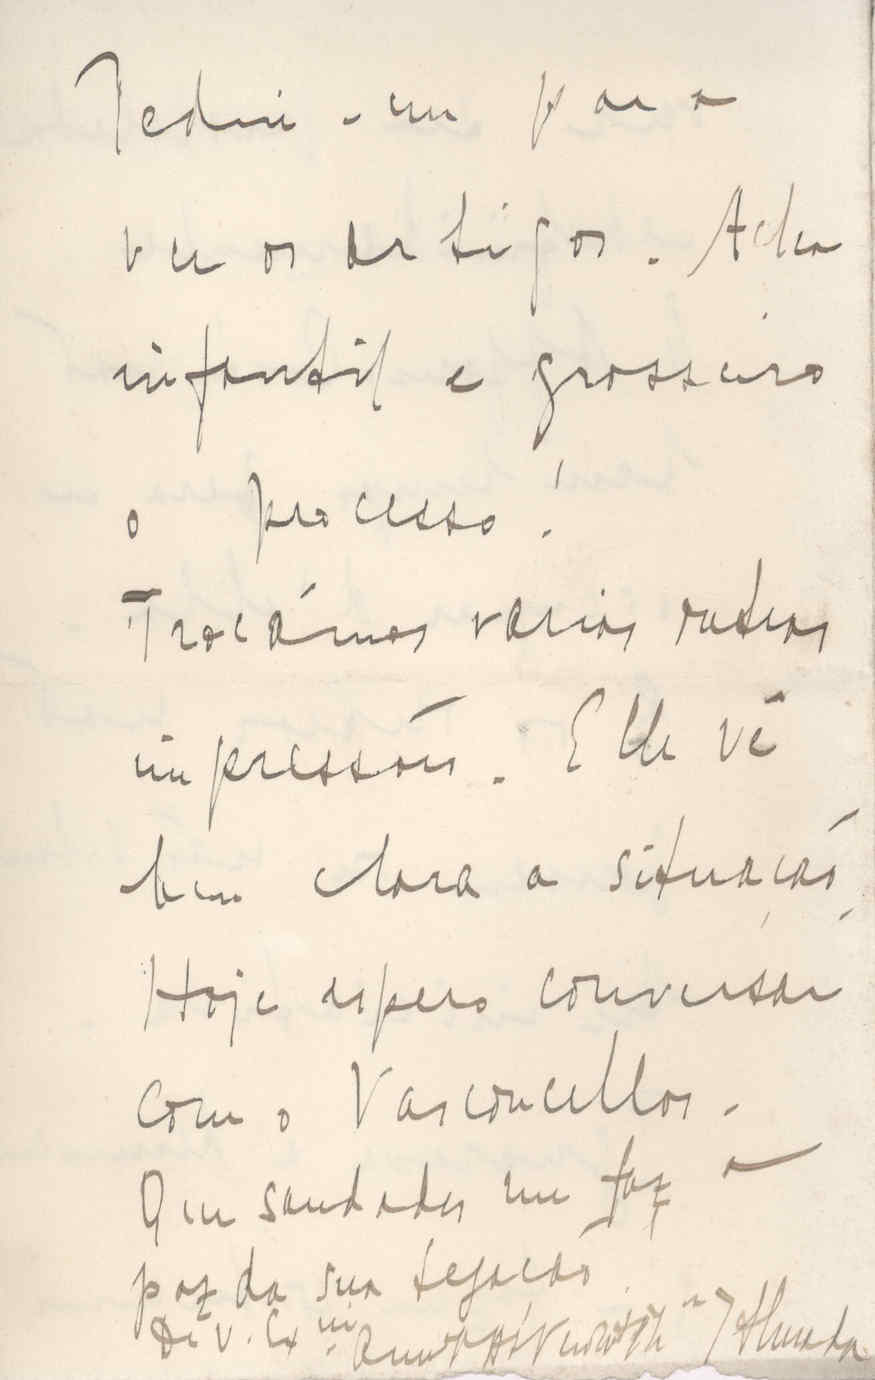 Pediu-me para
ver os artigos. Acha
infantil e grosseiro
o processo!
Trocámos varias outras
impressões. Elle vê
bem clara a situação.
Hoje espero conversar
com o Vasconcellos.
Que saudades me faz a
paz da sua Legação
De V. Ex Almada